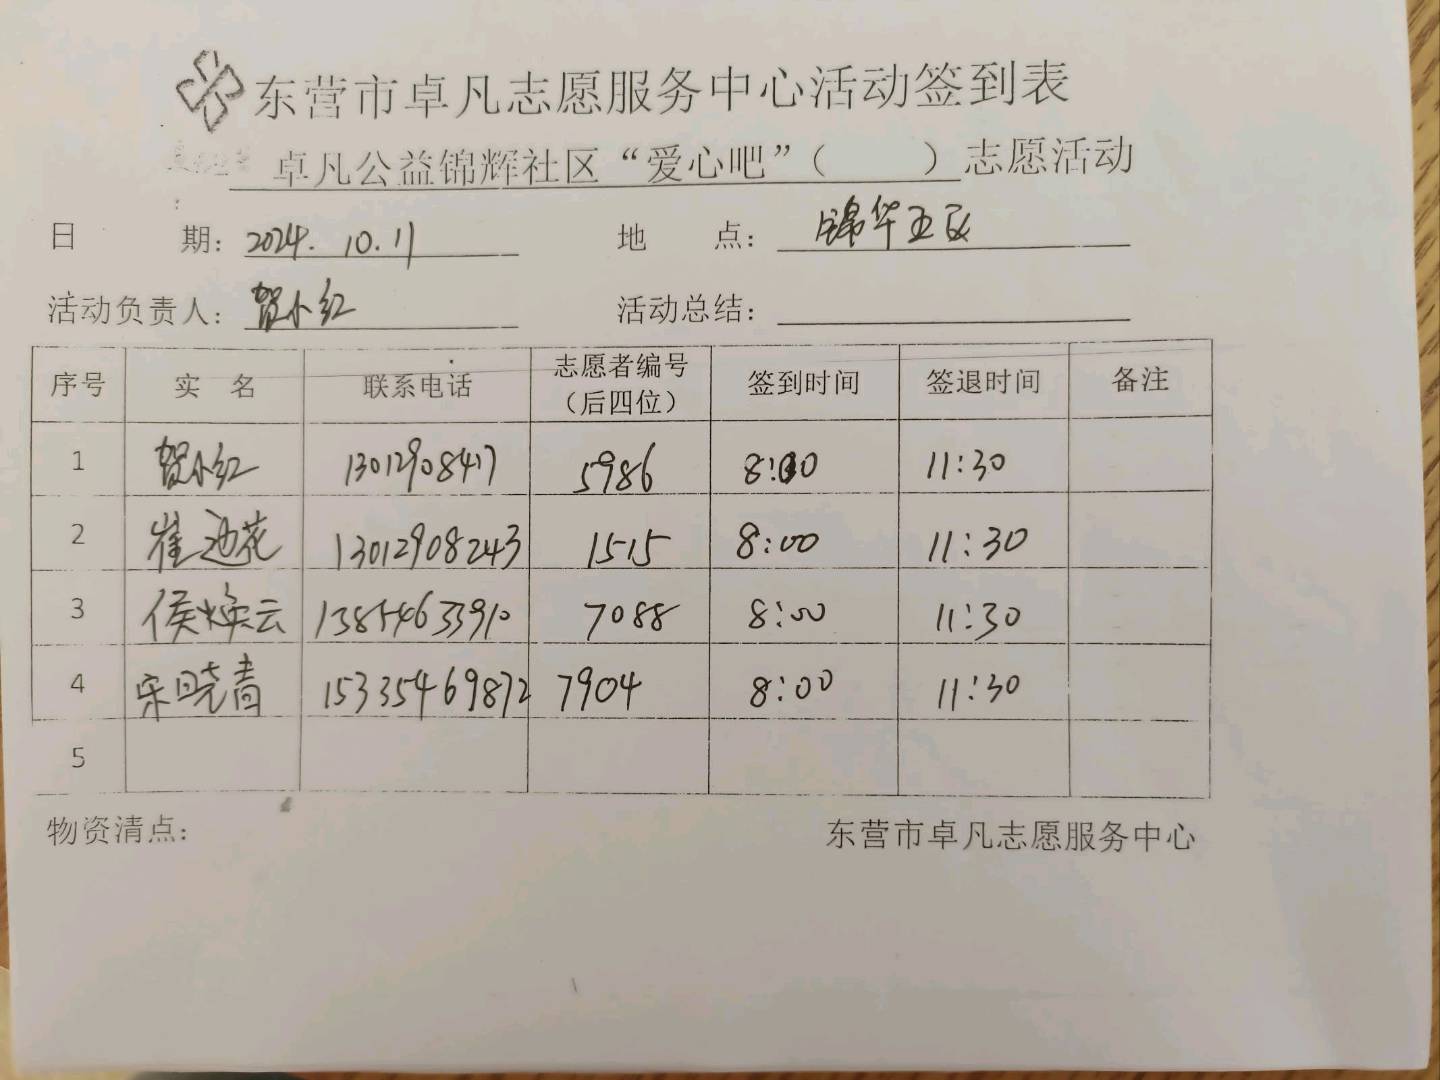 东营市卓凡志愿服务中心活动签到表
卓凡公益锦辉社区“爱心吧”（ ）志愿活动
日 期：2024.10.11 地 点：锦华五区
活动负责人：贺小红 活动总结：
序号 实 名 联系电话 志愿者编号（后四位） 签到时间 签退时间 备注
1 贺小红 13012908417 5986 8:00 11:30
2 崔迎花 13012908243 1515 8:00 11:30
3 侯焕云 13854633910 7088 8:00 11:30
4 宋晓青 15335469872 7904 8:00 11:30
5
物资清点： 东营市卓凡志愿服务中心